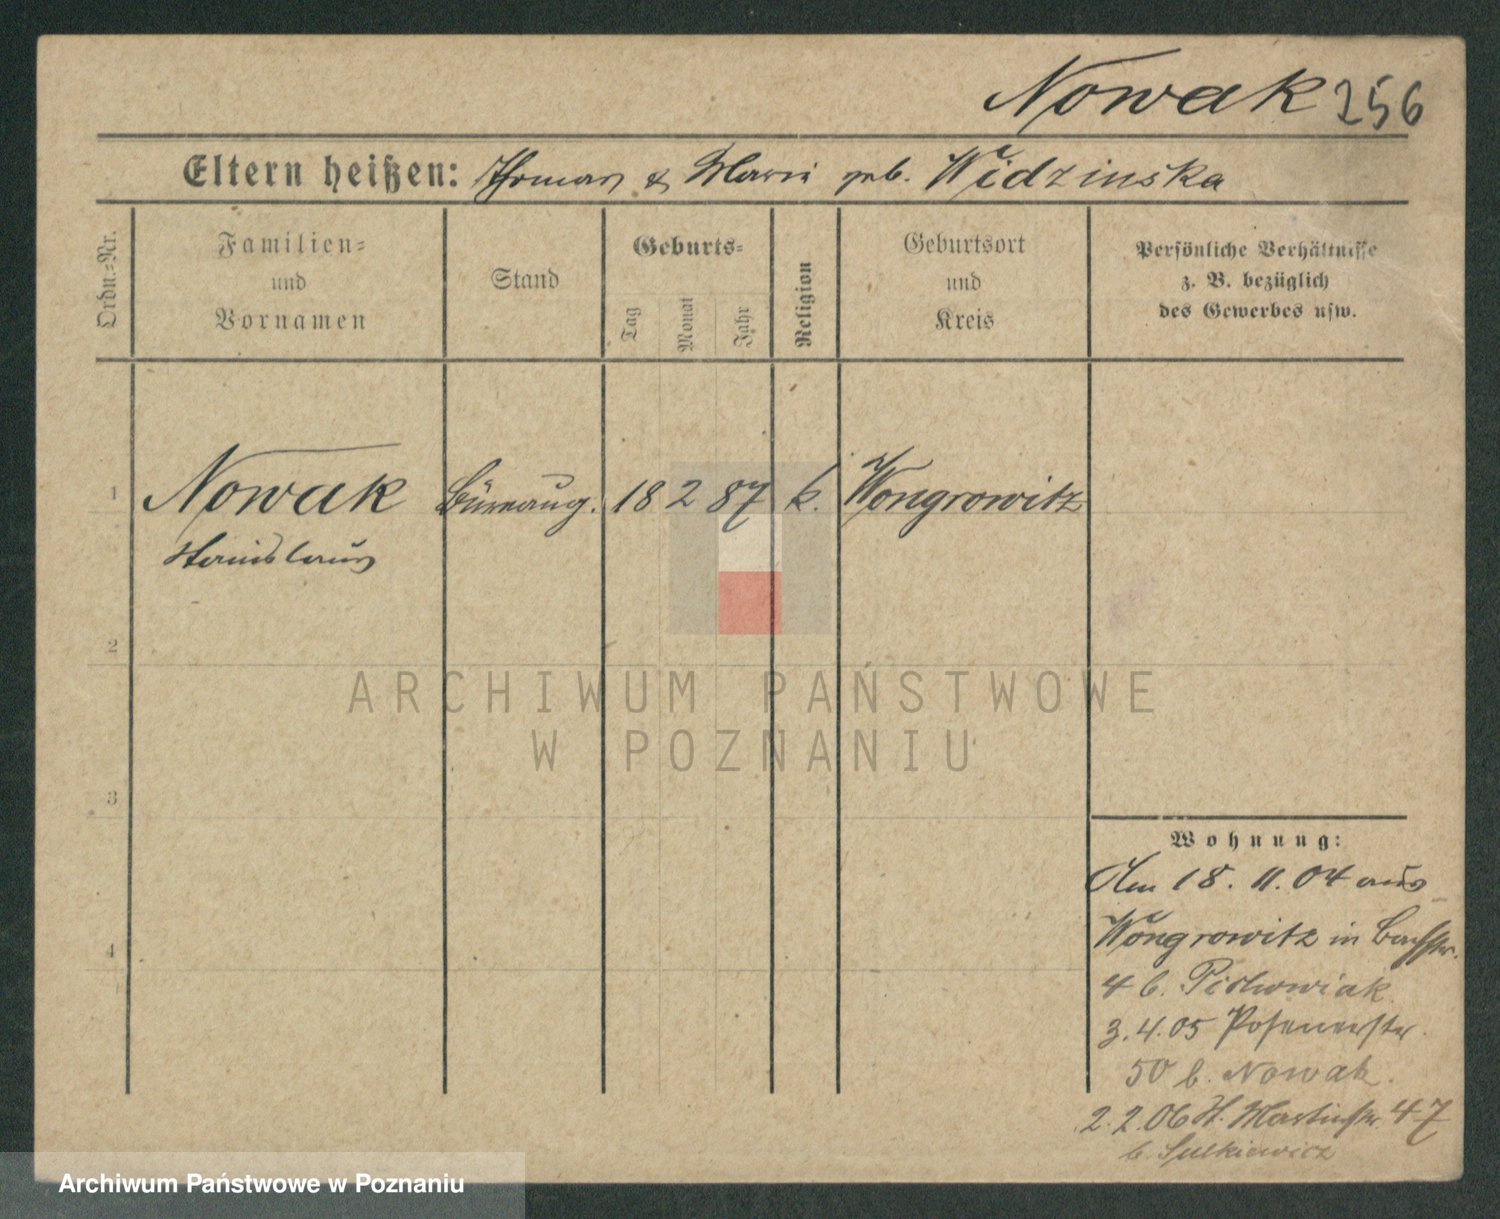 Nowak 256
Eltern heißen: Thomas & Marie geb. Widzinska
Ordn.-Nr.
Familien-
und
Vornamen
Stand
Geburts-
Tag
Monat
Jahr
Religion
Geburtsort
und
Kreis
Persönliche Verhältnisse
z. B. bezüglich
des Gewerbes usw.
1 Nowak Büreaug. 18 2 87 k. Wongrowitz
Stanislaus
2
3
4
ARCHIWUM PAŃSTWOWE
W POZNANIU
Wohnung:
Am 18. 11. 04 aus
Wongrowitz in Bachstr.
4 b.
3. 4. 05 Posenerstr.
50 b. Nowak.
2. 2. 06 St. Martinstr. 47
b. Sulkiewicz
Archiwum Państwowe w Poznaniu